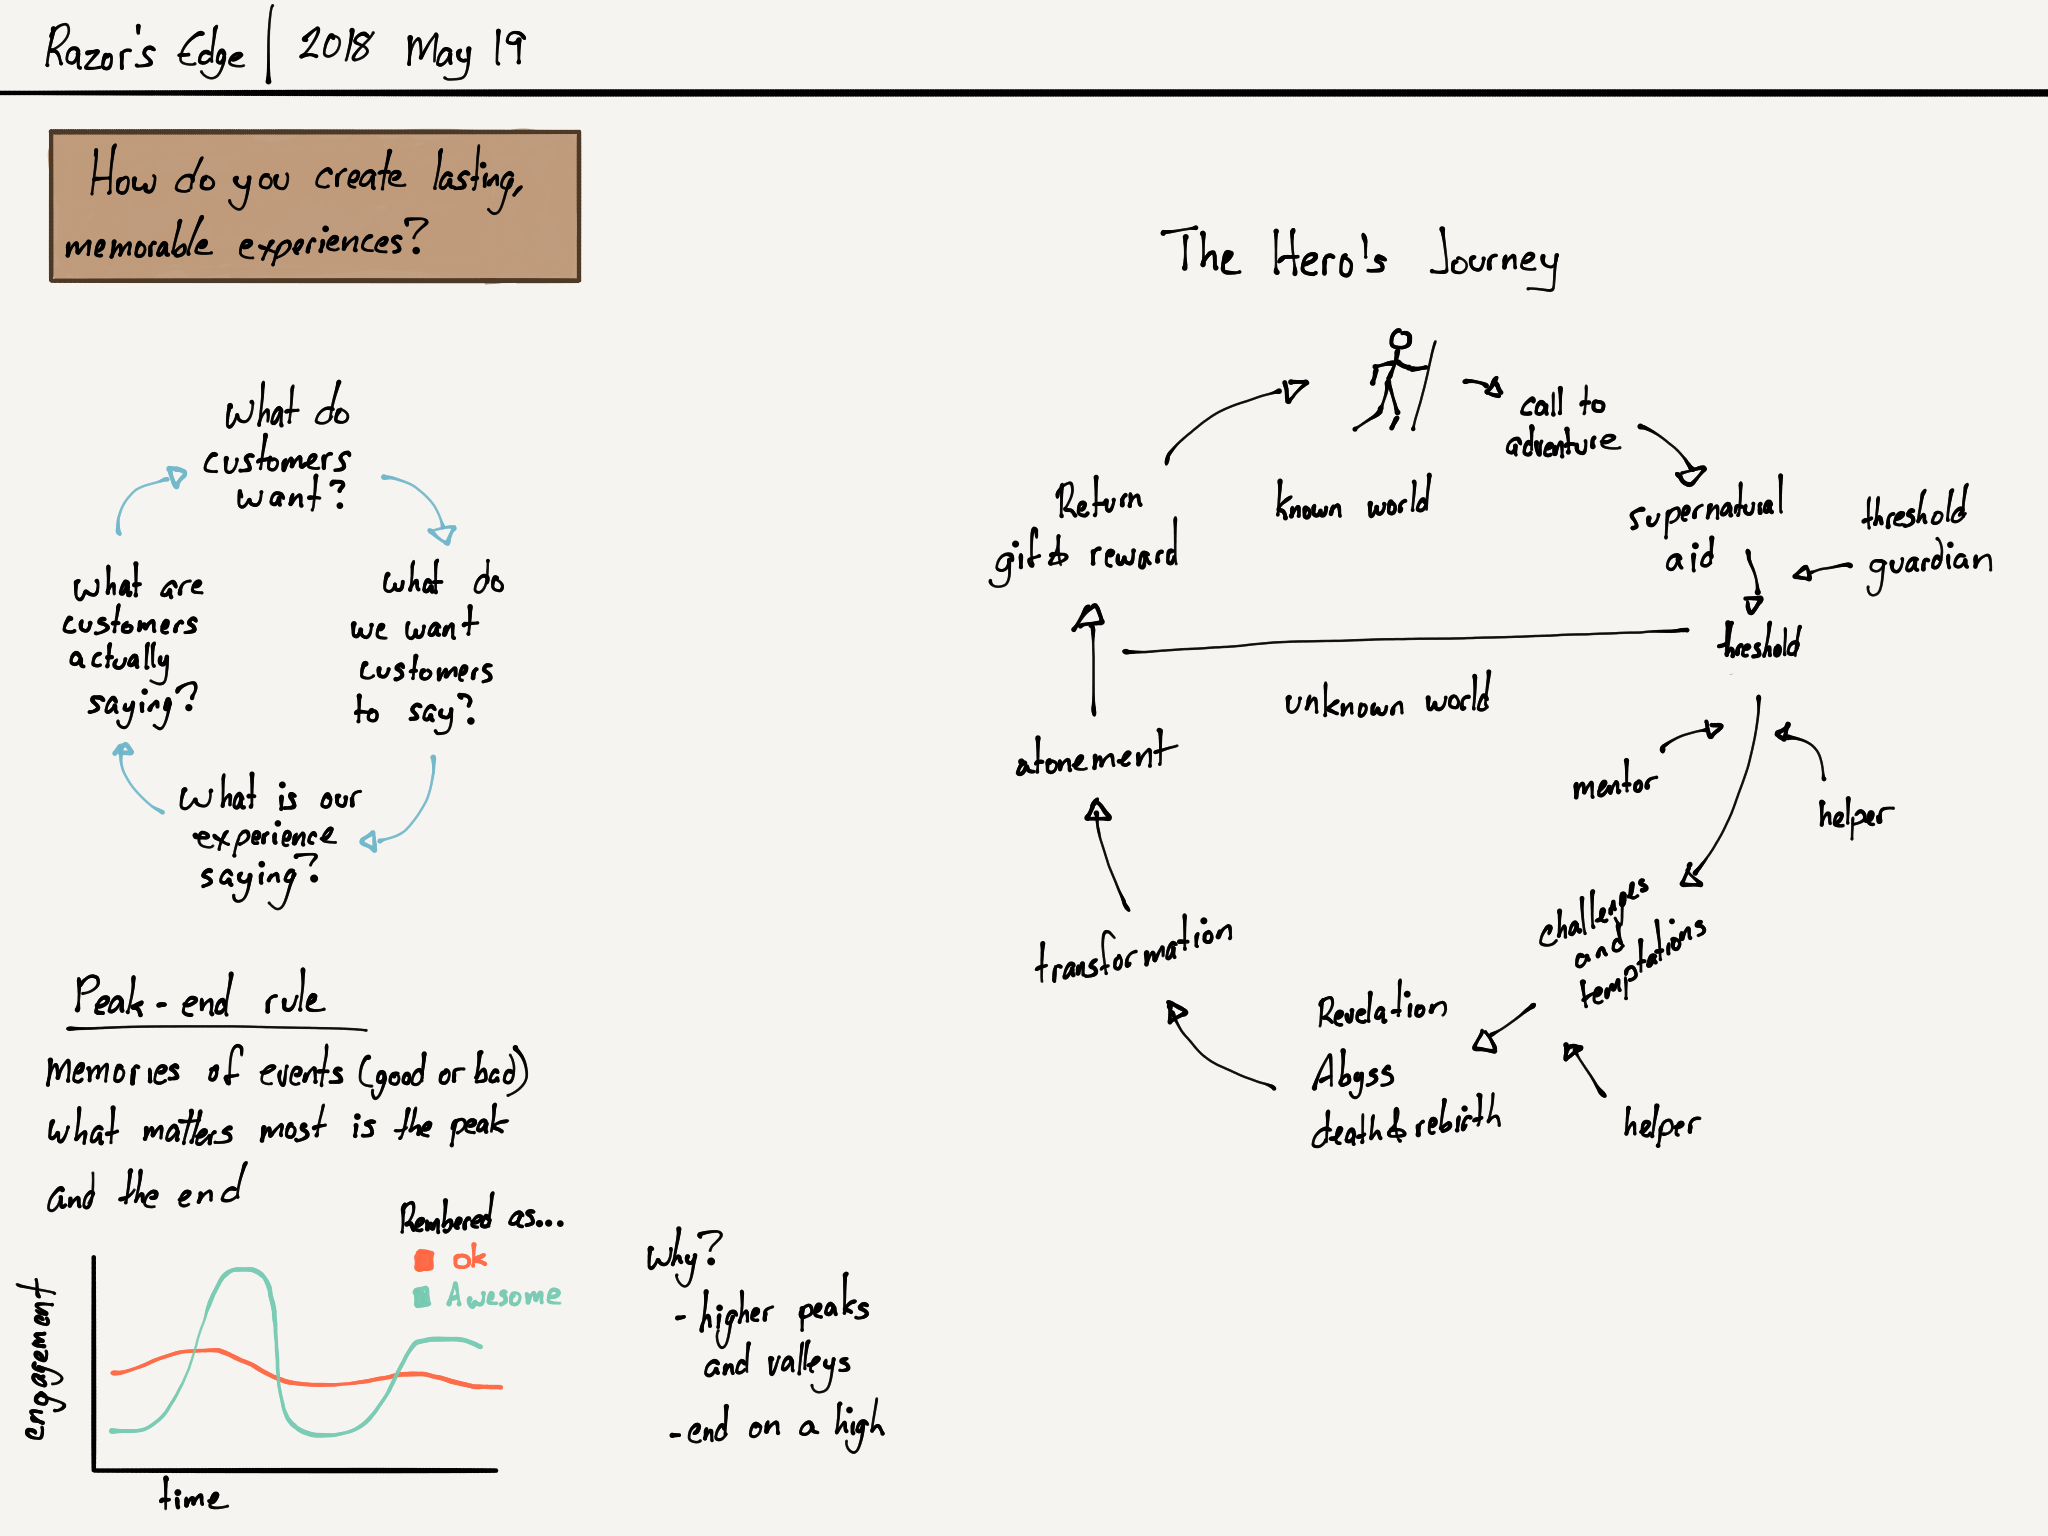 Razor's Edge | 2018 May 19
How do you create lasting,
memorable experiences?
What do
customers
want?
what do
we want
customers
to say?
What is our
experience
saying?
What are
customers
actually
saying?
Peak-end rule
Memories of events (good or bad)
what matters most is the peak
and the end
Rembered as...
ok
Awesome
engagement
time
Why?
- higher peaks
and valleys
- end on a high
The Hero's Journey
known world
call to
adventure
supernatural
aid
threshold
guardian
threshold
unknown world
mentor
helper
challenges
and
temptations
helper
Revelation
Abyss
death & rebirth
transformation
atonement
Return
gift & reward